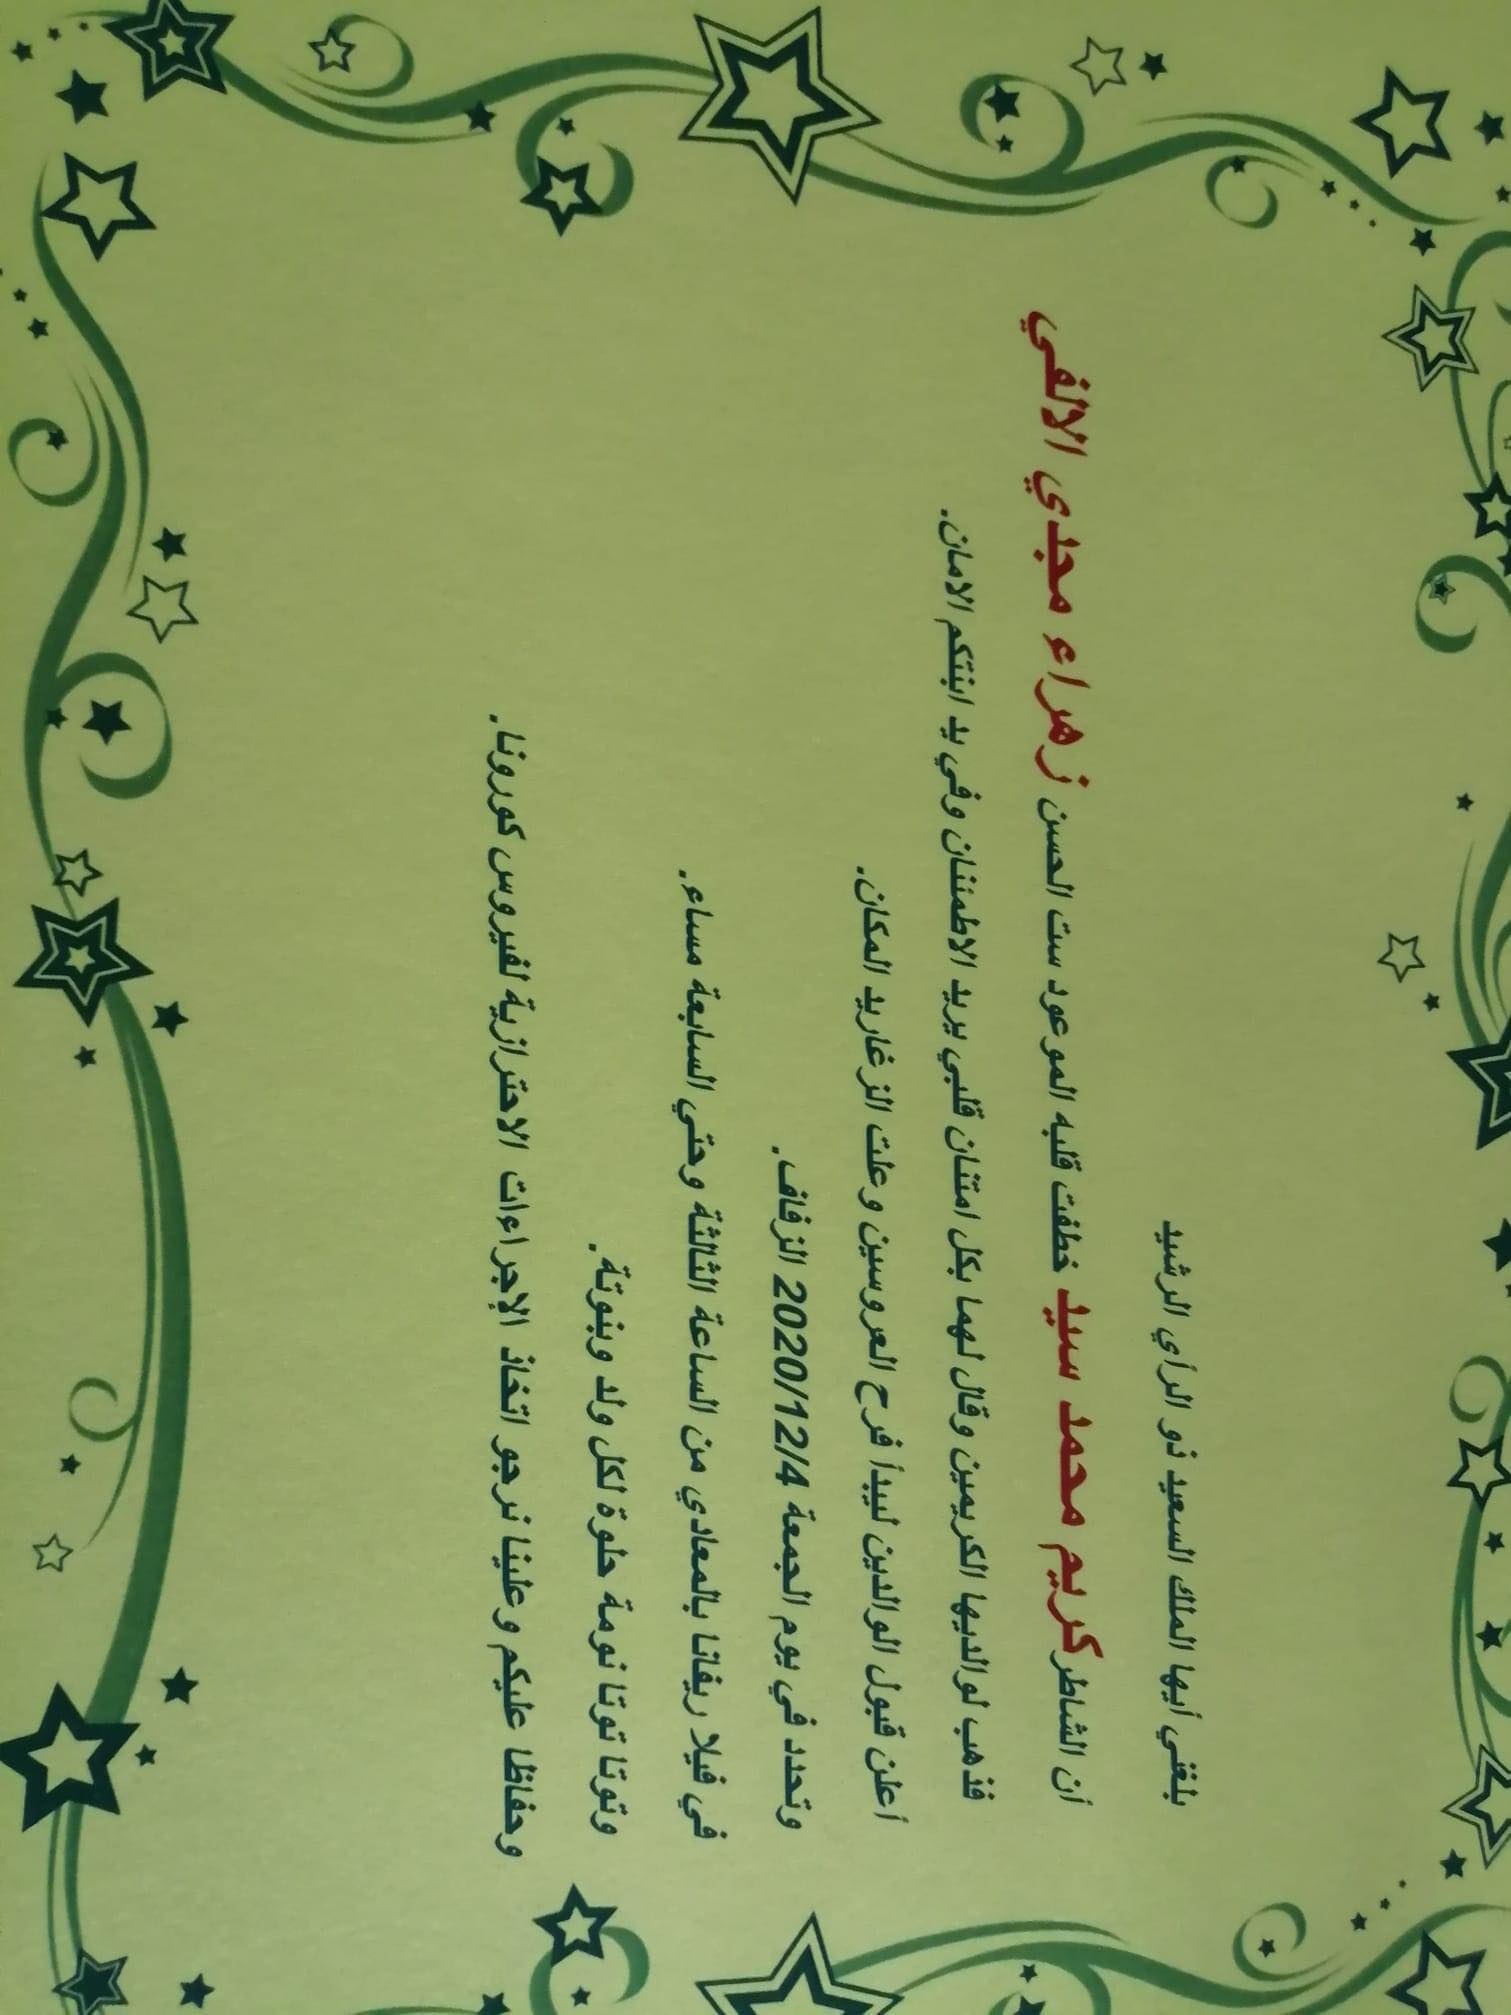 بلغني أيها الملك السعيد ذو الرأي الرشيد
أن الشاطر كريم محمد سيد خطفت قلبه الموعود ست الحسن زهراء مجدي الالفي
فذهب لوالديها الكريمين وقال لهما بكل امتنان قلبي يريد الاطمئنان وفي يد ابنتكم الامان.
أعلن قبول الوالدين ليبدأ فرح العروسين وعلت الزغاريد المكان.
وتحدد في يوم الجمعة 2020/12/4 الزفاف.
في فيلا ريفانا بالمعادي من الساعة الثالثة وحتي السابعة مساء.
وتوتا توتا نومة حلوة لكل ولد وبنوتة.
وحفاظا عليكم وعلينا نرجو اتخاذ الإجراءات الاحترازية لفيروس كورونا.